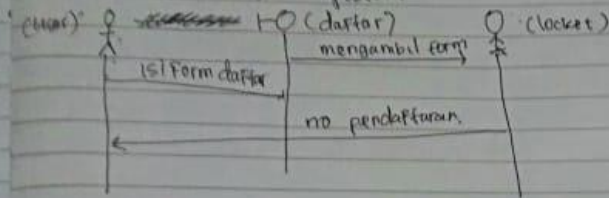 (user)
(daftar)
(locket)
mengambil form
isi form daftar
no pendaftaran.